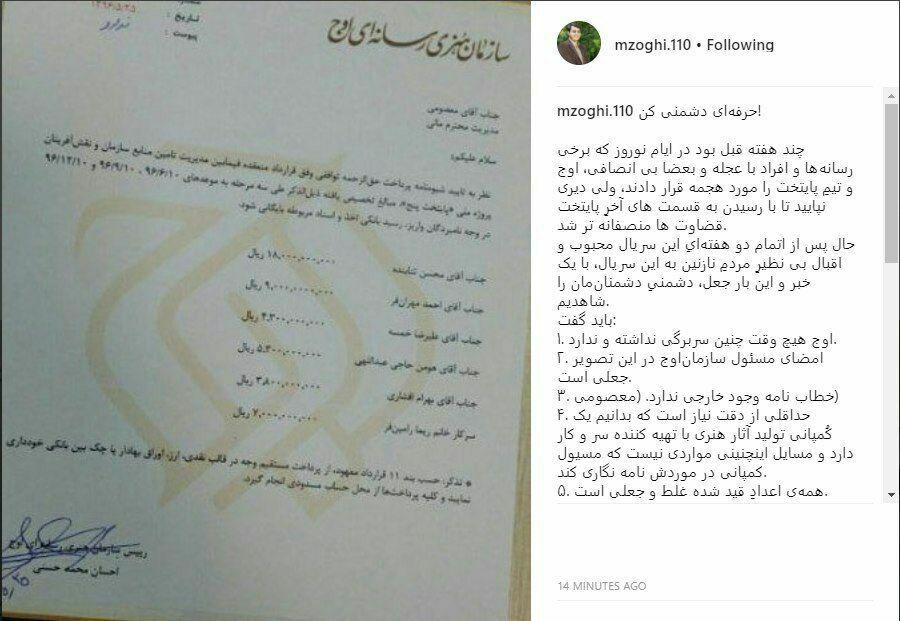 ۱۳۹۶/۵/۲۵
تاریخ :
ندارد
پیوست :
سازمان هنری رسانه‌ای اوج
جناب آقای معصومی
مدیریت محترم مالی
سلام علیکم؛
نظر به تایید شیوه‌نامه پرداخت حق‌الزحمه توافقی وفق قرارداد منعقده فیمابین مدیریت تامین منابع سازمان و نقش‌آفرینان
پروژه ملی «پایتخت پنج»، مبالغ تخصیص یافته ذیل‌الذکر طی سه مرحله به موعدهای ۹۶/۶/۱۰ ، ۹۶/۹/۱۰ و ۹۶/۱۲/۱۰
در وجه نامبردگان واریز، رسید بانکی اخذ و اسناد مربوطه بایگانی شود.
جناب آقای محسن تنابنده ۱۸،۰۰۰،۰۰۰،۰۰۰ ریال
جناب آقای احمد مهران‌فر ۹،۰۰۰،۰۰۰،۰۰۰ ریال
جناب آقای علیرضا خمسه ۴،۳۰۰،۰۰۰،۰۰۰ ریال
جناب آقای هومن حاجی عبداللهی ۵،۳۰۰،۰۰۰،۰۰۰ ریال
جناب آقای بهرام افشاری ۳،۸۰۰،۰۰۰،۰۰۰ ریال
سرکار خانم ریما رامین‌فر ۷،۰۰۰،۰۰۰،۰۰۰ ریال
* تذکر: حسب بند ۱۱ قرارداد معهود، از پرداخت مستقیم وجه در قالب نقدی، ارز، اوراق بهادار یا چک بین بانکی خودداری
نمایید و کلیه پرداخت‌ها از محل حساب مسدودی انجام گیرد.
رییس سازمان هنری رسانه‌ای اوج
احسان محمد حسنی
mzoghi.110 • Following
mzoghi.110 حرفه‌ای دشمنی کن!
چند هفته قبل بود در ایام نوروز که برخی
رسانه‌ها و افراد با عجله و بعضا بی انصافی، اوج
و تیمِ پایتخت را مورد هجمه قرار دادند، ولی دیری
نپایید تا با رسیدن به قسمت های آخرِ پایتخت
قضاوت ها منصفانه تر شد.
حال پس از اتمام دو هفته‌ایِ این سریال محبوب و
اقبال بی نظیرِ مردمِ نازنین به این سریال، با یک
خبر و این بار جعل، دشمنیِ دشمنان‌مان را
شاهدیم.
باید گفت:
۱. اوج هیچ وقت چنین سربرگی نداشته و ندارد.
۲. امضای مسئول سازمان‌اوج در این تصویر
جعلی است.
۳. خطاب نامه وجود خارجی ندارد. (معصومی)
۴. حداقلی از دقت نیاز است که بدانیم یک
کُمپانی تولید آثار هنری با تهیه کننده سر و کار
دارد و مسایل اینچنینی مواردی نیست که مسیول
کمپانی در موردش نامه نگاری کند.
۵. همه‌ی اعدادِ قید شده غلط و جعلی است.
14 MINUTES AGO